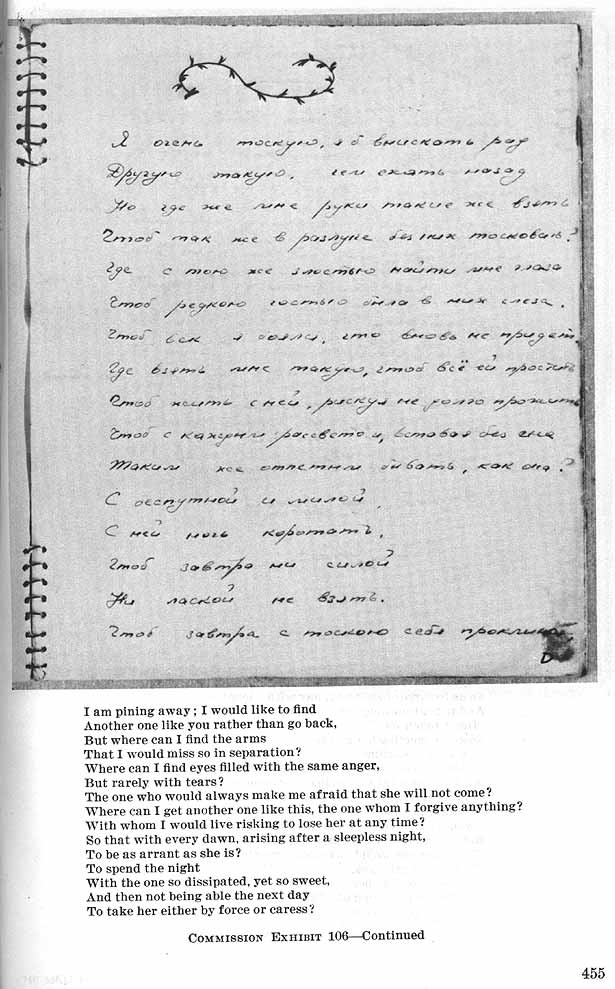 Я очень тоскую, я б выискать рад
Другую такую, чем ехать назад
Но где же мне руки такие же взять
Чтоб так же в разлуке без них тосковать?
Где с тою же злостью найти мне глаза
Чтоб редкою гостью была в них слеза.
Чтоб век я боялся, что вновь не придет,
Где взять мне такую, чтоб всё ей простить
Чтоб жить с ней, рискуя не долго прожить
Чтоб с каждым рассветом, вставая без сна
Таким же отпетым бывать, как она?
С беспутной и милой
С ней ночь коротать,
Чтоб завтра ни силой
Ни лаской не взять.
Чтоб завтра с тоскою себя
D
I am pining away; I would like to find
Another one like you rather than go back,
But where can I find the arms
That I would miss so in separation?
Where can I find eyes filled with the same anger,
But rarely with tears?
The one who would always make me afraid that she will not come?
Where can I get another one like this, the one whom I forgive anything?
With whom I would live risking to lose her at any time?
So that with every dawn, arising after a sleepless night,
To be as arrant as she is?
To spend the night
With the one so dissipated, yet so sweet,
And then not being able the next day
To take her either by force or caress?
COMMISSION EXHIBIT 106—Continued
455